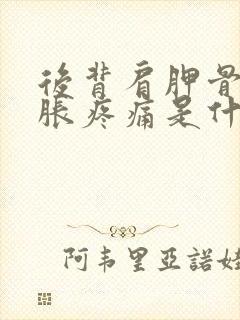 後背肩胛骨
脹疼痛是什
阿韦里亚諾娃